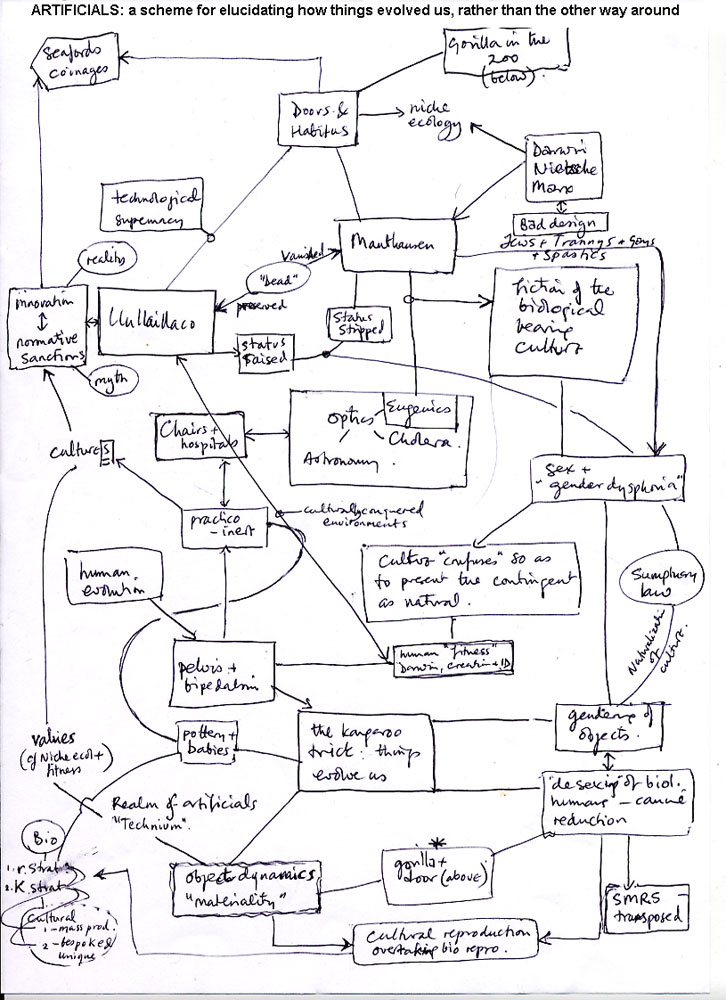 ARTIFICIALS: a scheme for elucidating how things evolved us, rather than the other way around
Seafords
coinages
Gorilla in the
zoo
(below).
Doors &
Habitus
niche
ecology
Darwin
Nietzsche
Marx
technological
supremacy
Bad design
Jews + Trannys + Gays
+ Spastics
Mauthausen
Vanished
reality
"Dead"
preserved
innovation
normative
sanctions
Llullaillaco
Status
Stripped
status
raised
fiction of the
biological
bearing
culture
myth
Chairs +
hospitals
optics
Eugenics
Cholera.
Astronomy.
culture[s]
sex +
"gender dysphoria"
practico
-inert
culturally conquered
environments
Culture "confuses" so as
to present the contingent
as natural.
Sumptuary
law
human
evolution
human "fitness"
Darwin, creation + ID
Naturalization
of
culture.
pelvis +
bipedalism
values
(of Niche ecol +
fitness
pottery +
babies
the kangaroo
trick: things
evolve us
gendering of
objects.
"desexing" of biol.
humans -
reduction
Realm of artificials
"Technium".
Bio
1. r. strat.
2. K strat
object dynamics
"materiality"
*
gorilla +
door (above)
SMRS
transposed
Cultural
1 - mass prod.
2 - bespoke &
unique
Cultural reproduction
overtaking bio repro.